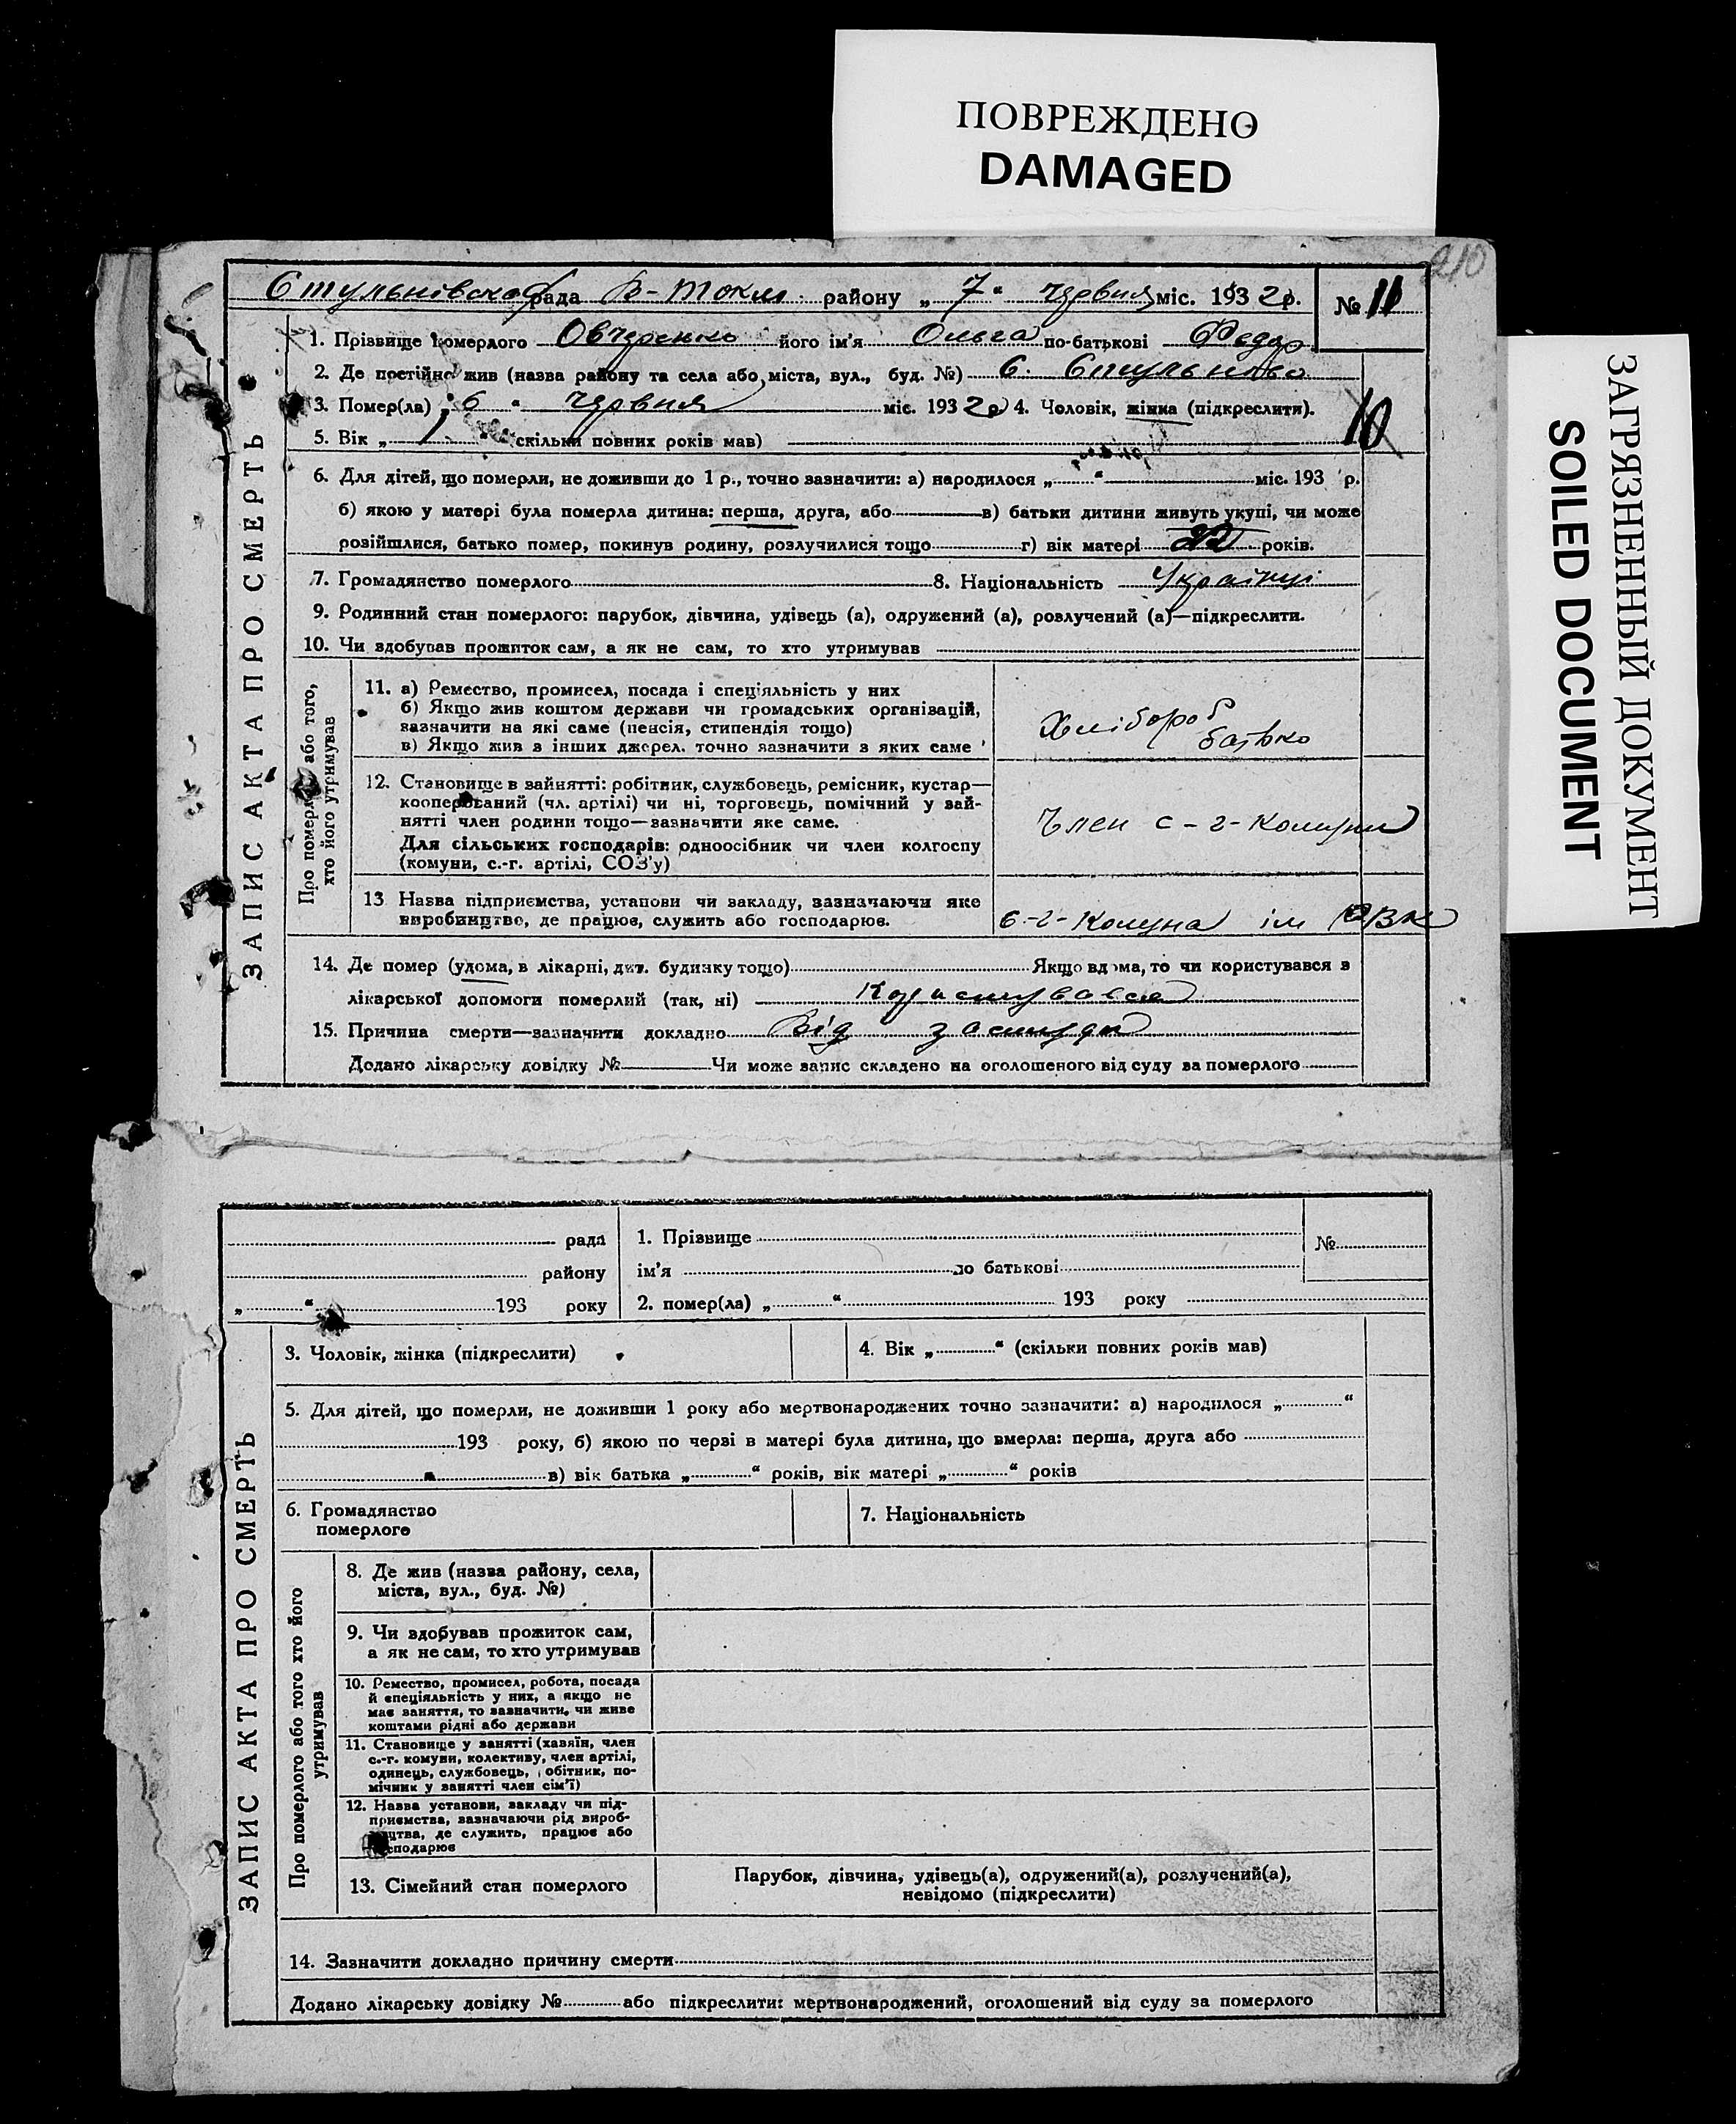 ПОВРЕЖДЕНО
DAMAGED
ЗАГРЯЗНЕННЫЙ ДОКУМЕНТ
SOILED DOCUMENT
210
рада В-Токм. району „ 7 “ червня міс. 1932 р.
№ 11
ЗАПИС АКТА ПРО СМЕРТЬ
1. Прізвище померлого Овчаренко його ім'я Ольга по-батькові Федор
2. Де постійно жив (назва району та села або міста, вул., буд. №) С.
3. Помер(ла) „ 6 “ червня міс. 1932 р. 4. Чоловік, жінка (підкреслити).
10
5. Вік „ 1 “ скільки повних років мав)
6. Для дітей, що померли, не доживши до 1 р., точно зазначити: а) народилося „ “ міс. 193 р.
б) якою у матері була померла дитина: перша, друга, або в) батьки дитини живуть укупі, чи може
розійшлися, батько помер, покинув родину, розлучилися тощо г) вік матері 22 років.
7. Громадянство померлого 8. Національність Українці
9. Родинний стан померлого: парубок, дівчина, удівець (а), одружений (а), розлучений (а)—підкреслити.
10. Чи здобував прожиток сам, а як не сам, то хто утримував
Про померлого або того, хто його утримував
11. а) Ремество, промисел, посада і спеціяльність у них
б) Якщо жив коштом держави чи громадських організацій,
зазначити на які саме (пенсія, стипендія тощо)
в) Якщо жив з інших джерел. точно зазначити з яких саме
Хлібороб
батько
12. Становище в зайнятті: робітник, службовець, ремісник, кустар—
кооперований (чл. артілі) чи ні, торговець, помічний у зай-
нятті член родини тощо—зазначити яке саме.
Для сільських господарів: одноосібник чи член колгоспу
(комуни, с.-г. артілі, СОЗ'у)
Член с-г-комуни
13 Назва підприємства, установи чи закладу, зазначаючи яке
виробництво, де працює, служить або господарює.
С-г-Комуна ім
14. Де помер (удома, в лікарні, дит. будинку тощо) Якщо вдома, то чи користувався з
лікарської допомоги померлий (так, ні) Користувався
15. Причина смерти—зазначити докладно Від застуди
Додано лікарську довідку № Чи може запис складено на оголошеного від суду за померлого
ЗАПИС АКТА ПРО СМЕРТЬ
рада
району
„ “ 193 року
1. Прізвище
ім'я по батькові
2. помер(ла) „ “ 193 року
№
3. Чоловік, жінка (підкреслити)
4. Вік „ “ (скільки повних років мав)
5. Для дітей, що померли, не доживши 1 року або мертвонароджених точно зазначити: а) народилося „ “
193 року, б) якою по черзі в матері була дитина, що вмерла: перша, друга або
в) вік батька „ “ років, вік матері „ “ років
6. Громадянство
померлого
7. Національність
Про померлого або того хто його утримував
8. Де жив (назва району, села,
міста, вул., буд. №)
9. Чи здобував прожиток сам,
а як не сам, то хто утримував
10. Ремество, промисел, робота, посада
й спеціяльність у них, а якщо не
має заняття, то зазначити, чи живе
коштами рідні або держави
11. Становище у занятті (хазяїн, член
с.-г. комуни, колективу, член артілі,
одинець, службовець, обітник, по-
мічник у занятті член сім'ї)
12. Назва установи, закладу чи під-
приємства, зазначаючи рід вироб-
ництва, де служить, працює або
господарює
13. Сімейний стан померлого
Парубок, дівчина, удівець(а), одружений(а), розлучений(а),
невідомо (підкреслити)
14. Зазначити докладно причину смерти
Додано лікарську довідку № або підкреслити: мертвонароджений, оголошений від суду за померлого